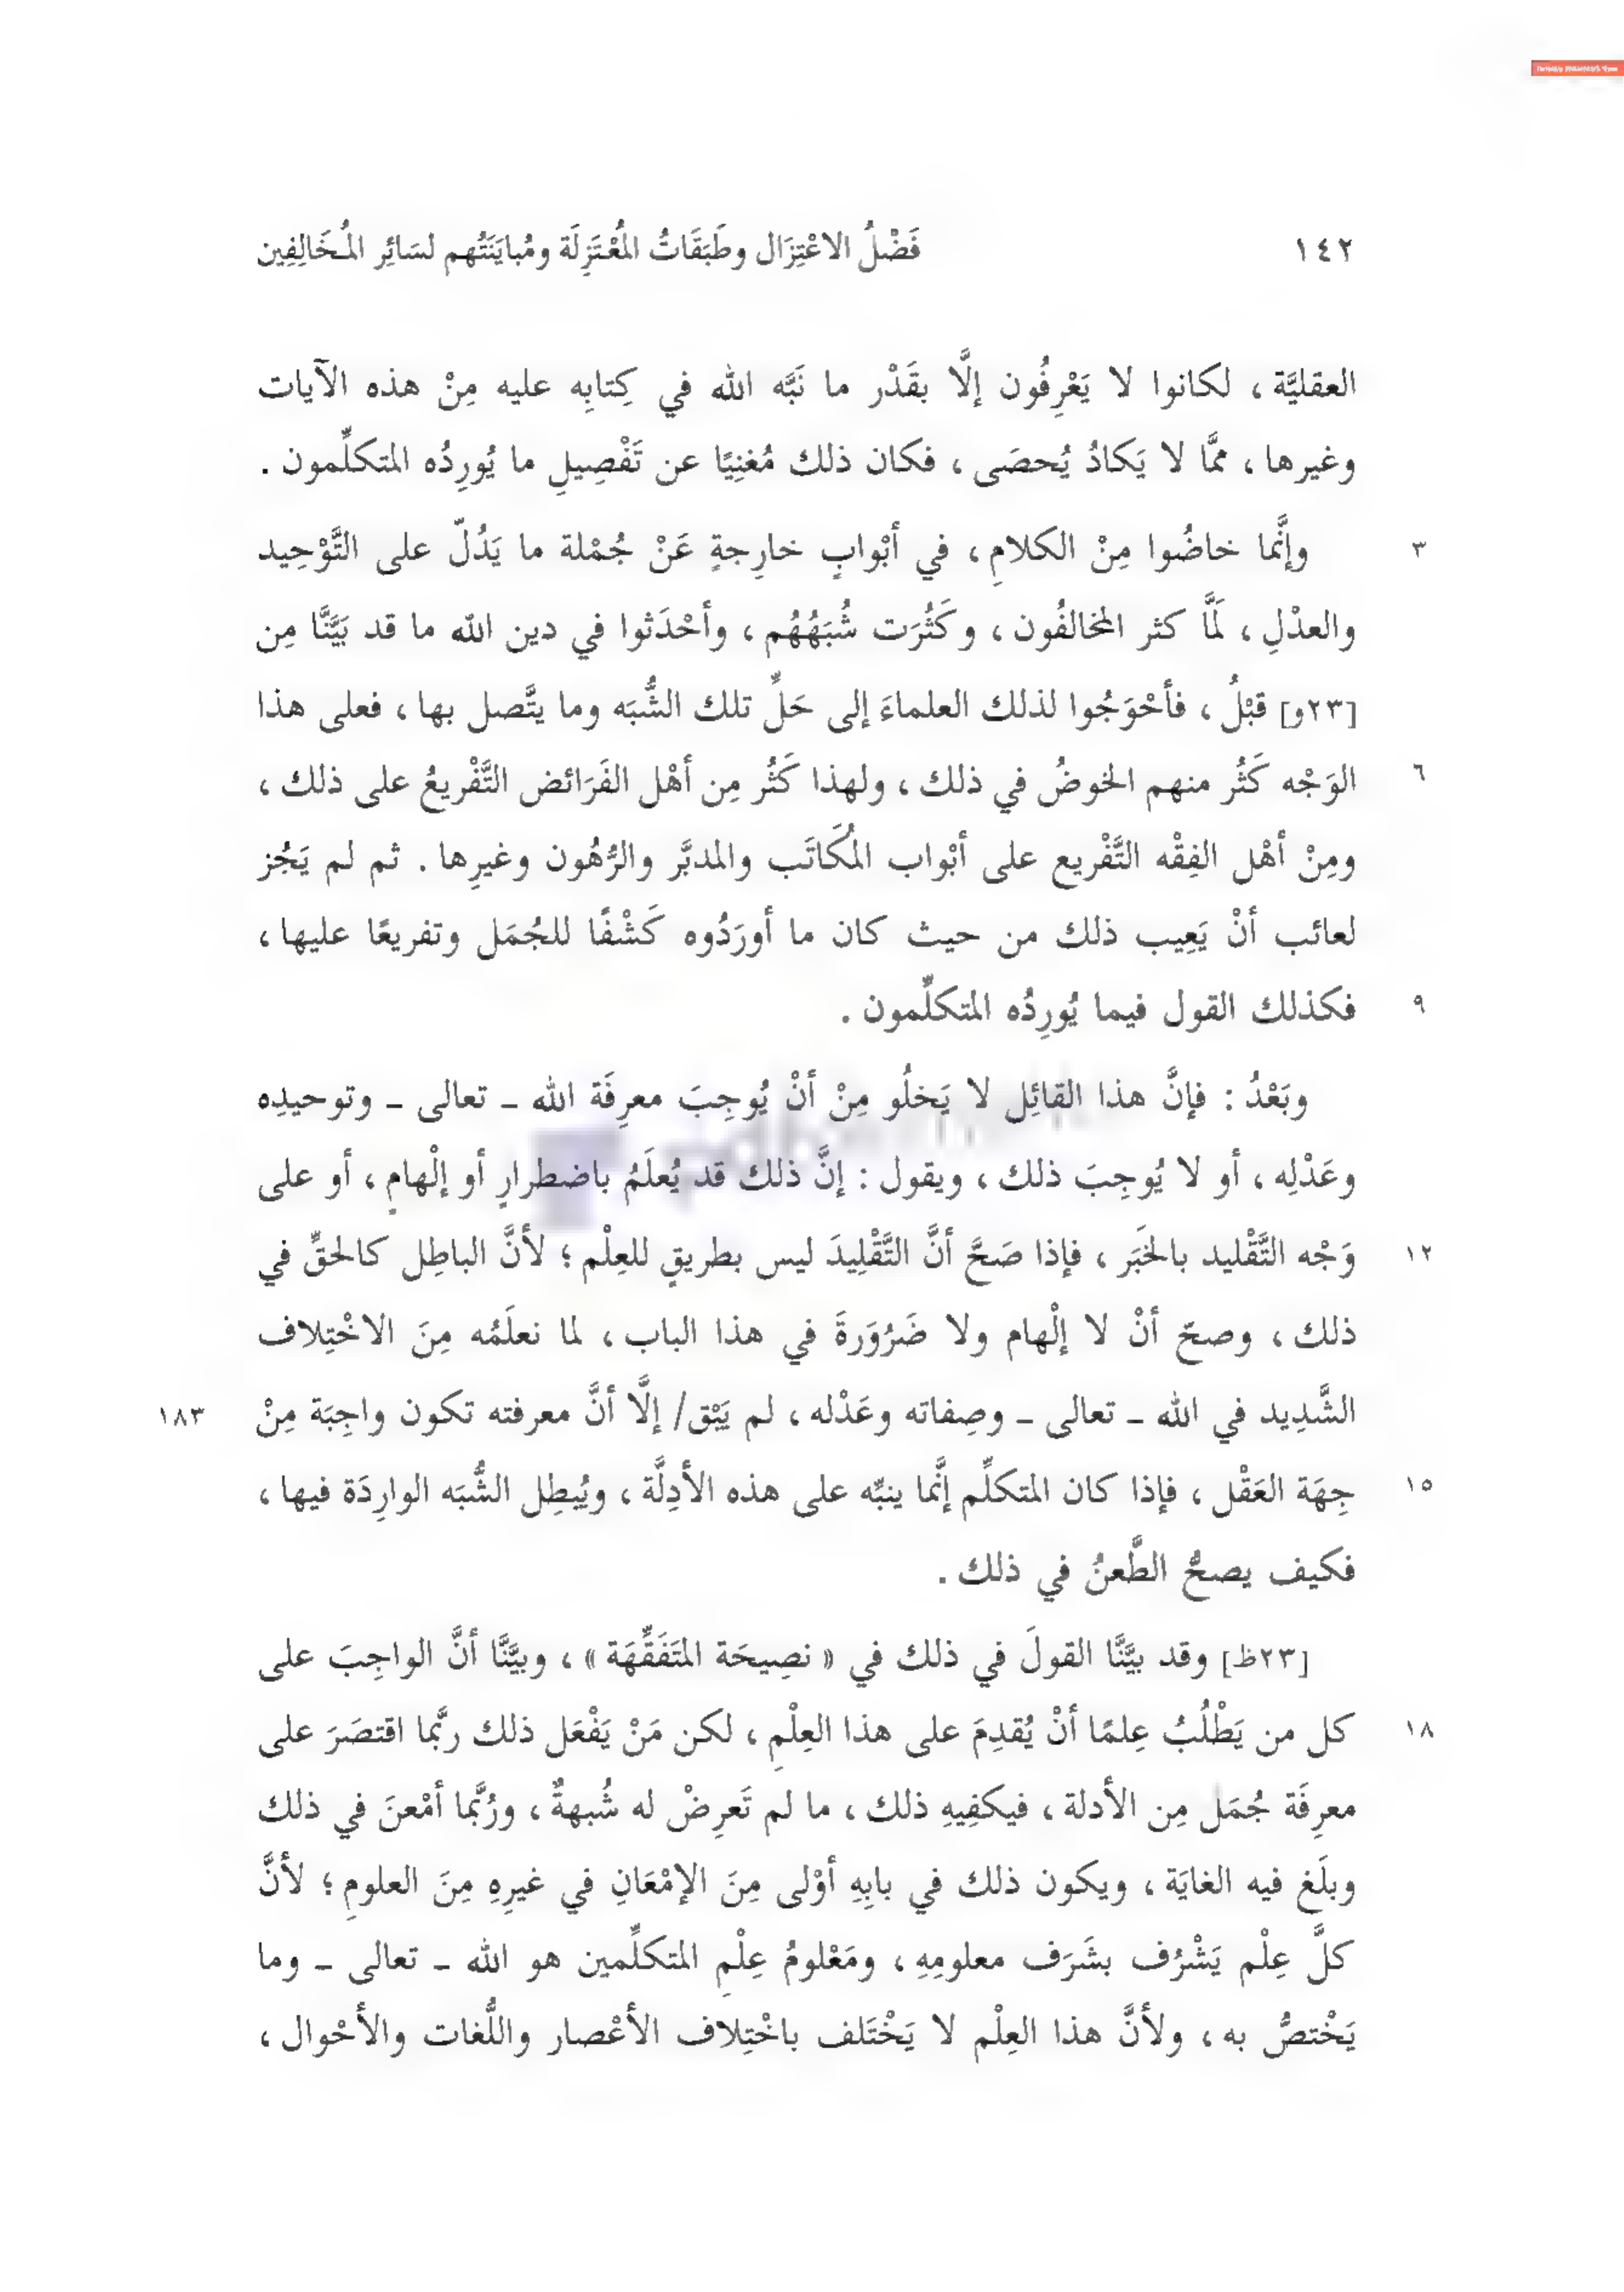 ١٤٢ فَضْلُ الاعْتِزَال وطَبَقَاتُ المُعْتَزِلَة ومُبايَنَتُهم لسَائِر المُخَالِفِين
العقليَّة ، لكانوا لا يَعْرِفُون إلَّا بقَدْر ما نَبَّه الله في كِتابِه عليه مِنْ هذه الآيات
وغيرها ، ممَّا لا يَكادُ يُحصَى ، فكان ذلك مُغنِيًا عن تَفْصِيلِ ما يُورِدُه المتكلِّمون .
٣ وإنَّما خاضُوا مِنْ الكلامِ ، في أبْوابٍ خارِجةٍ عَنْ جُمْلة ما يَدُلّ على التَّوْحِيد
والعدْلِ ، لَمَّا كثر المخالفُون ، وكَثُرَت شُبَهُهُم ، وأحْدَثوا في دين الله ما قد بَيَّنَّا مِن
[٢٣و] قبْلُ ، فأحْوَجُوا لذلك العلماءَ إلى حَلِّ تلك الشُّبَه وما يتَّصل بها ، فعلى هذا
٦ الوَجْه كَثُر منهم الخوضُ في ذلك ، ولهذا كَثُر مِن أهْل الفَرَائض التَّفْريعُ على ذلك ،
ومِنْ أهْل الفِقْه التَّفْريع على أبْواب المُكَاتَب والمدبَّر والرُّهُون وغيرِها . ثم لم يَجُز
لعائب أنْ يَعِيب ذلك من حيث كان ما أورَدُوه كَشْفًا للجُمَل وتفريعًا عليها ،
٩ فكذلك القول فيما يُورِدُه المتكلِّمون .
وبَعْدُ : فإنَّ هذا القائِل لا يَخلُو مِنْ أنْ يُوجِبَ معرِفَة الله ـ تعالى ـ وتوحيدِه
وعَدْلِه ، أو لا يُوجِبَ ذلك ، ويقول : إنَّ ذلك قد يُعلَمُ باضطرارٍ أو إلْهامٍ ، أو على
١٢ وَجْه التَّقْليد بالخَبَر ، فإذا صَحَّ أنَّ التَّقْلِيدَ ليس بطريقٍ للعِلْم ؛ لأنَّ الباطِل كالحقِّ في
ذلك ، وصحّ أنْ لا إلْهام ولا ضَرُوَرةَ في هذا الباب ، لما نعلَمُه مِنَ الاخْتِلاف
الشَّدِيد في الله ـ تعالى ـ وصِفاته وعَدْله ، لم يَبْق/ إلَّا أنَّ معرفته تكون واجِبَة مِنْ ١٨٣
١٥ جِهَة العَقْل ، فإذا كان المتكلِّم إنَّما ينبِّه على هذه الأدِلَّة ، ويُبطِل الشُّبَه الوارِدَة فيها ،
فكيف يصحُّ الطَّعنُ في ذلك .
[٢٣ظ] وقد بيَّنَّا القولَ في ذلك في « نصِيحَة المتَفَقِّهَة » ، وبيَّنَّا أنَّ الواجِبَ على
١٨ كل من يَطْلُبُ عِلمًا أنْ يُقدِمَ على هذا العِلْمِ ، لكن مَنْ يَفْعَل ذلك ربَّما اقتصَرَ على
معرِفَة جُمَل مِن الأدلة ، فيكفِيهِ ذلك ، ما لم تَعرِضْ له شُبهةٌ ، ورُبَّما أمْعنَ في ذلك
وبلَغ فيه الغايَة ، ويكون ذلك في بابِهِ أوْلى مِنَ الإمْعَانِ في غيرِهِ مِنَ العلومِ ؛ لأنَّ
كلَّ عِلْم يَشْرُف بشَرَف معلومِهِ ، ومَعْلومُ عِلْمِ المتكلِّمين هو الله ـ تعالى ـ وما
يَخْتصُّ به ، ولأنَّ هذا العِلْم لا يَخْتَلف باخْتِلاف الأعْصار واللُّغات والأحْوال ،